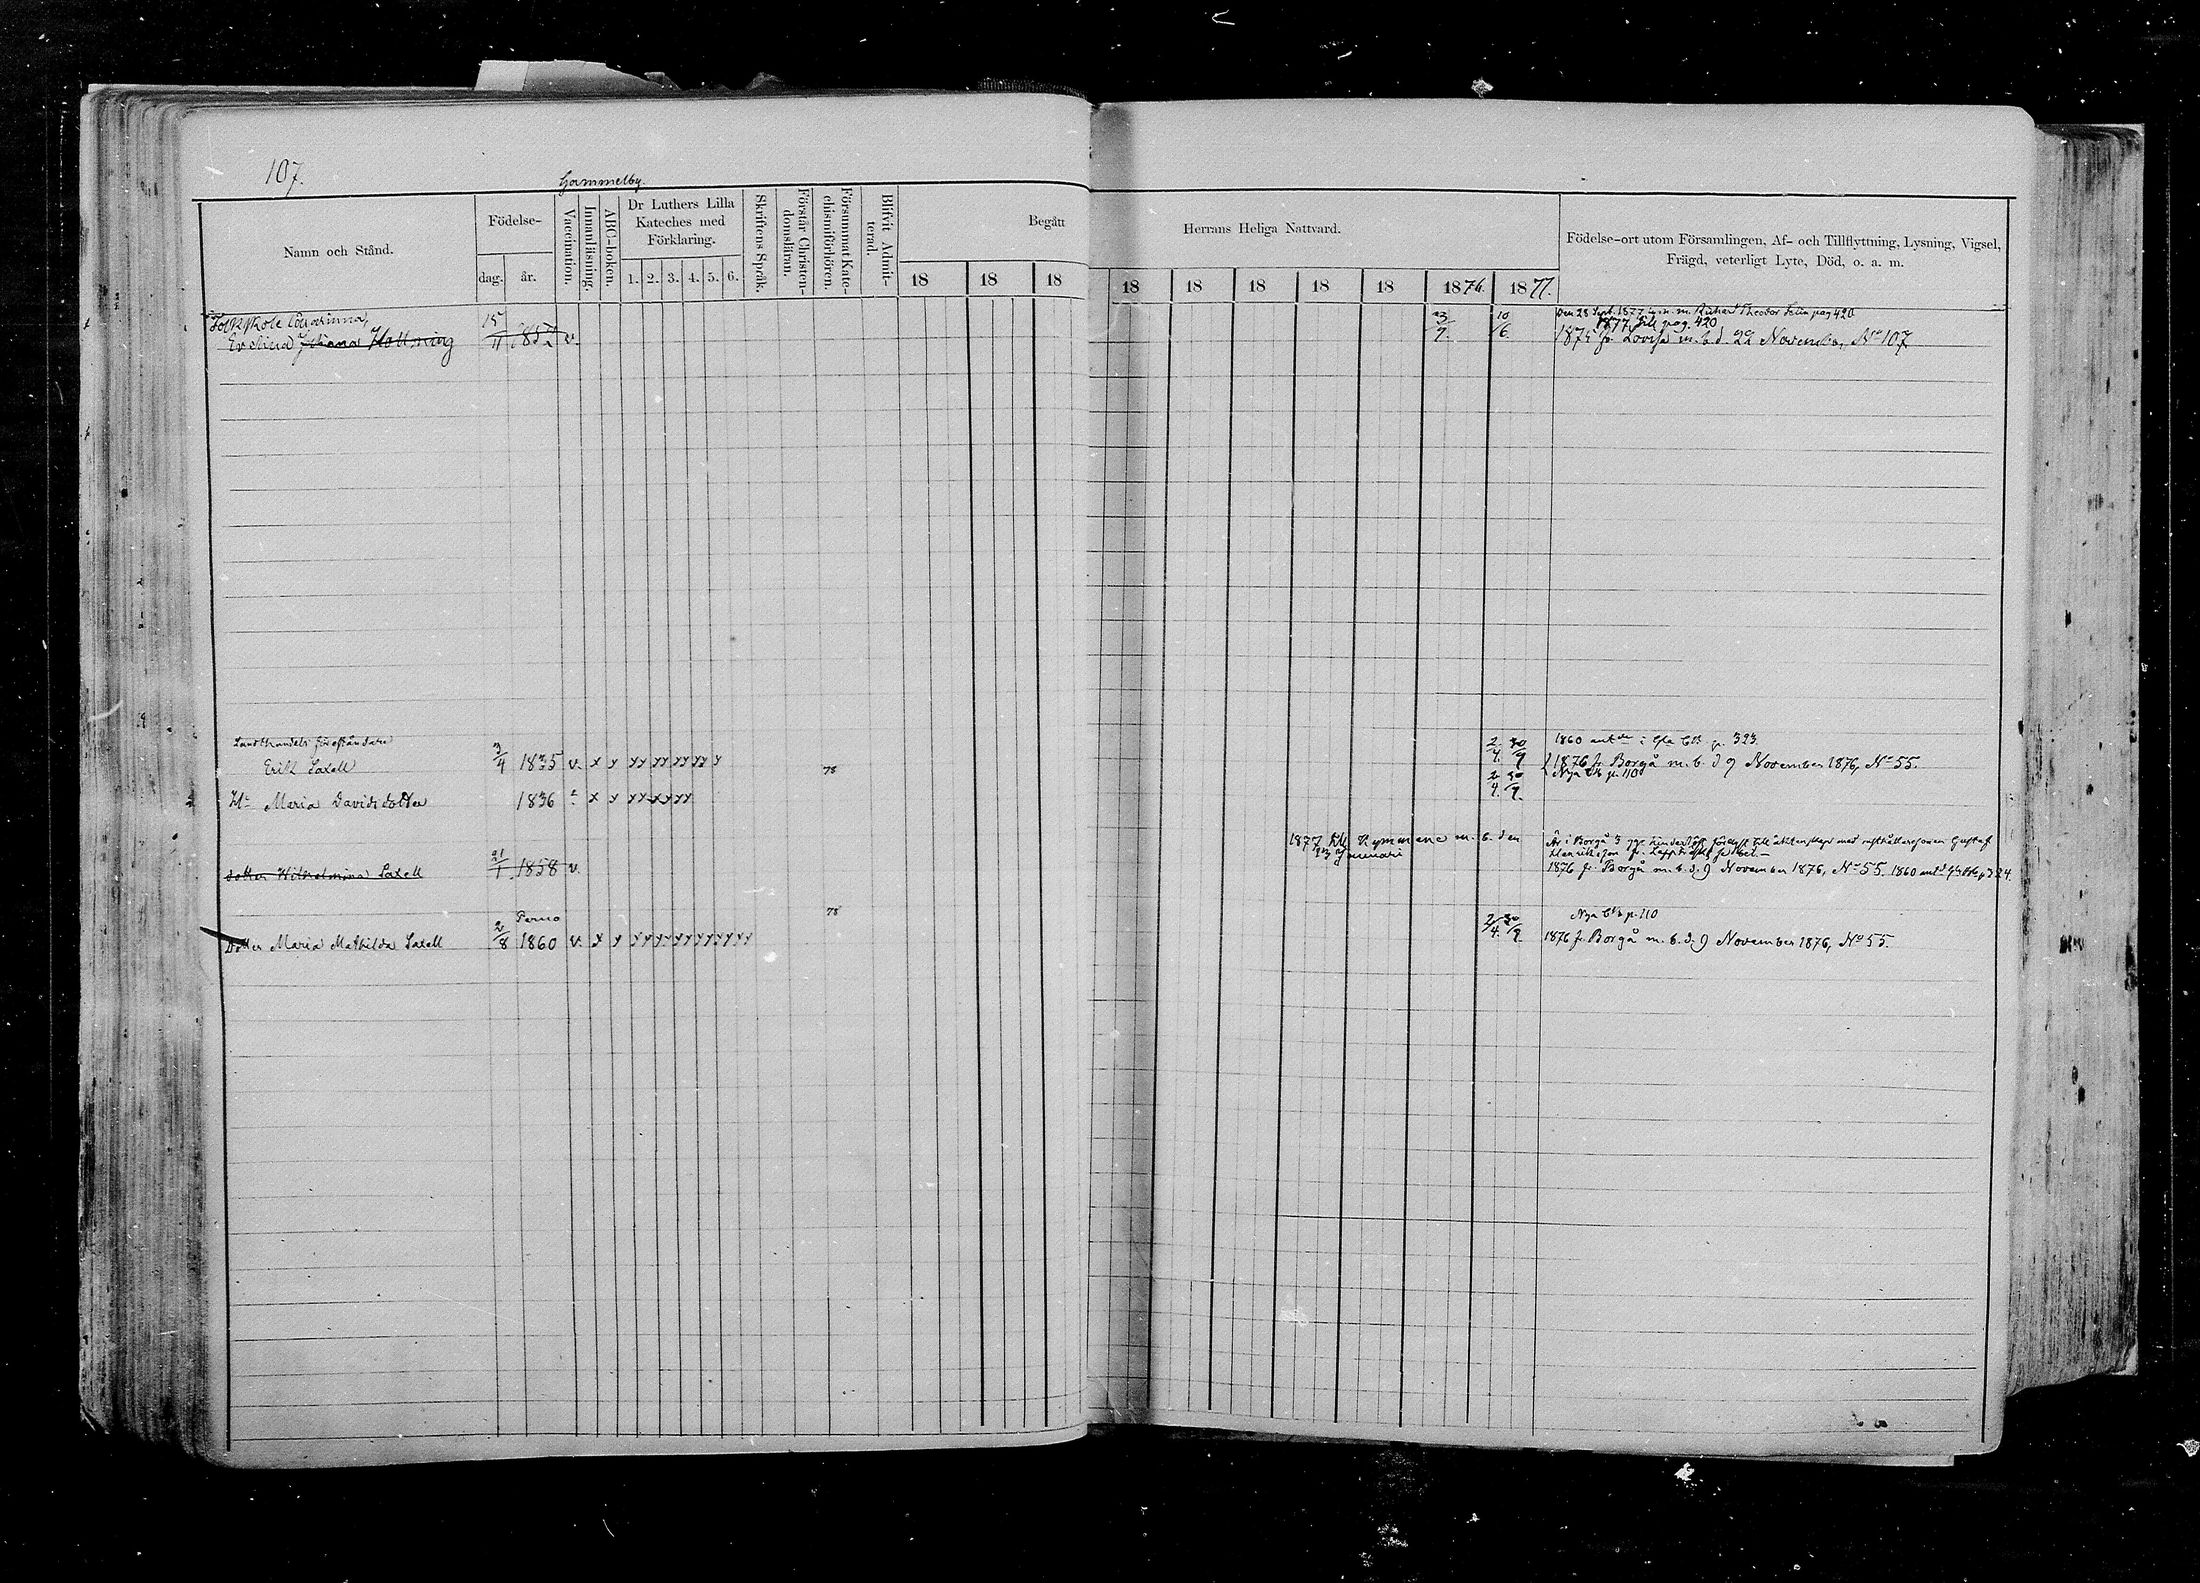 107.
Gammelby.
Namn och Stånd.
Födelse-
dag.
år.
Vaccination.
Innanläsning.
ABC-boken.
Dr Luthers Lilla
Kateches med
Förklaring.
1. 2. 3. 4. 5. 6.
Skriftens Språk.
Förstår Christen-
domsläran.
Försummat Kate-
chismiförhören.
Blifvit Admit-
terad.
Begått
Herrans Heliga Nattvard.
18 18 18 18 18 18 18 18 1876. 1877.
Födelse-ort utom Församlingen, Af- och Tillflyttning, Lysning, Vigsel,
Frägd, veterligt Lyte, Död, o. a. m.
Folkskole lärarinna, 15 10 Den 28 Sept. 1877 m. Theodor Felin pag 420
1877 till pag. 420
Evelina Holtning 11 1852 v. 9. 6. 1875 fr. Lovisa m. b. d. 22 November, No 107
Landthandels föreståndare 3 2 30 1860 i p. 323.
Erik Saxell 4 1835 v. x y yy yy yy yy y 78 4. 9 1876 fr. Borgå m. b. d 9 November 1876, No 55.
2 30 Nya p. 110
Maria Davidsdotter 1836 x y yy yy yy 4. 9.
1877 till Kymmene m. b. den
Januari
Är i Borgå 3 med Gustaf
21
dotter Wilhelmina Saxell 1. 1858 v. 1876 fr. Borgå m. b. d. 9 November 1876, No 55. 1860
Perno 78 Nya p. 110
2 2 30
Dotter Maria Mathilda Saxell 8 1860 v. x y yy yy yy yy yy yy 4. 9. 1876 fr. Borgå m. b. d. 9 November 1876, No 55.